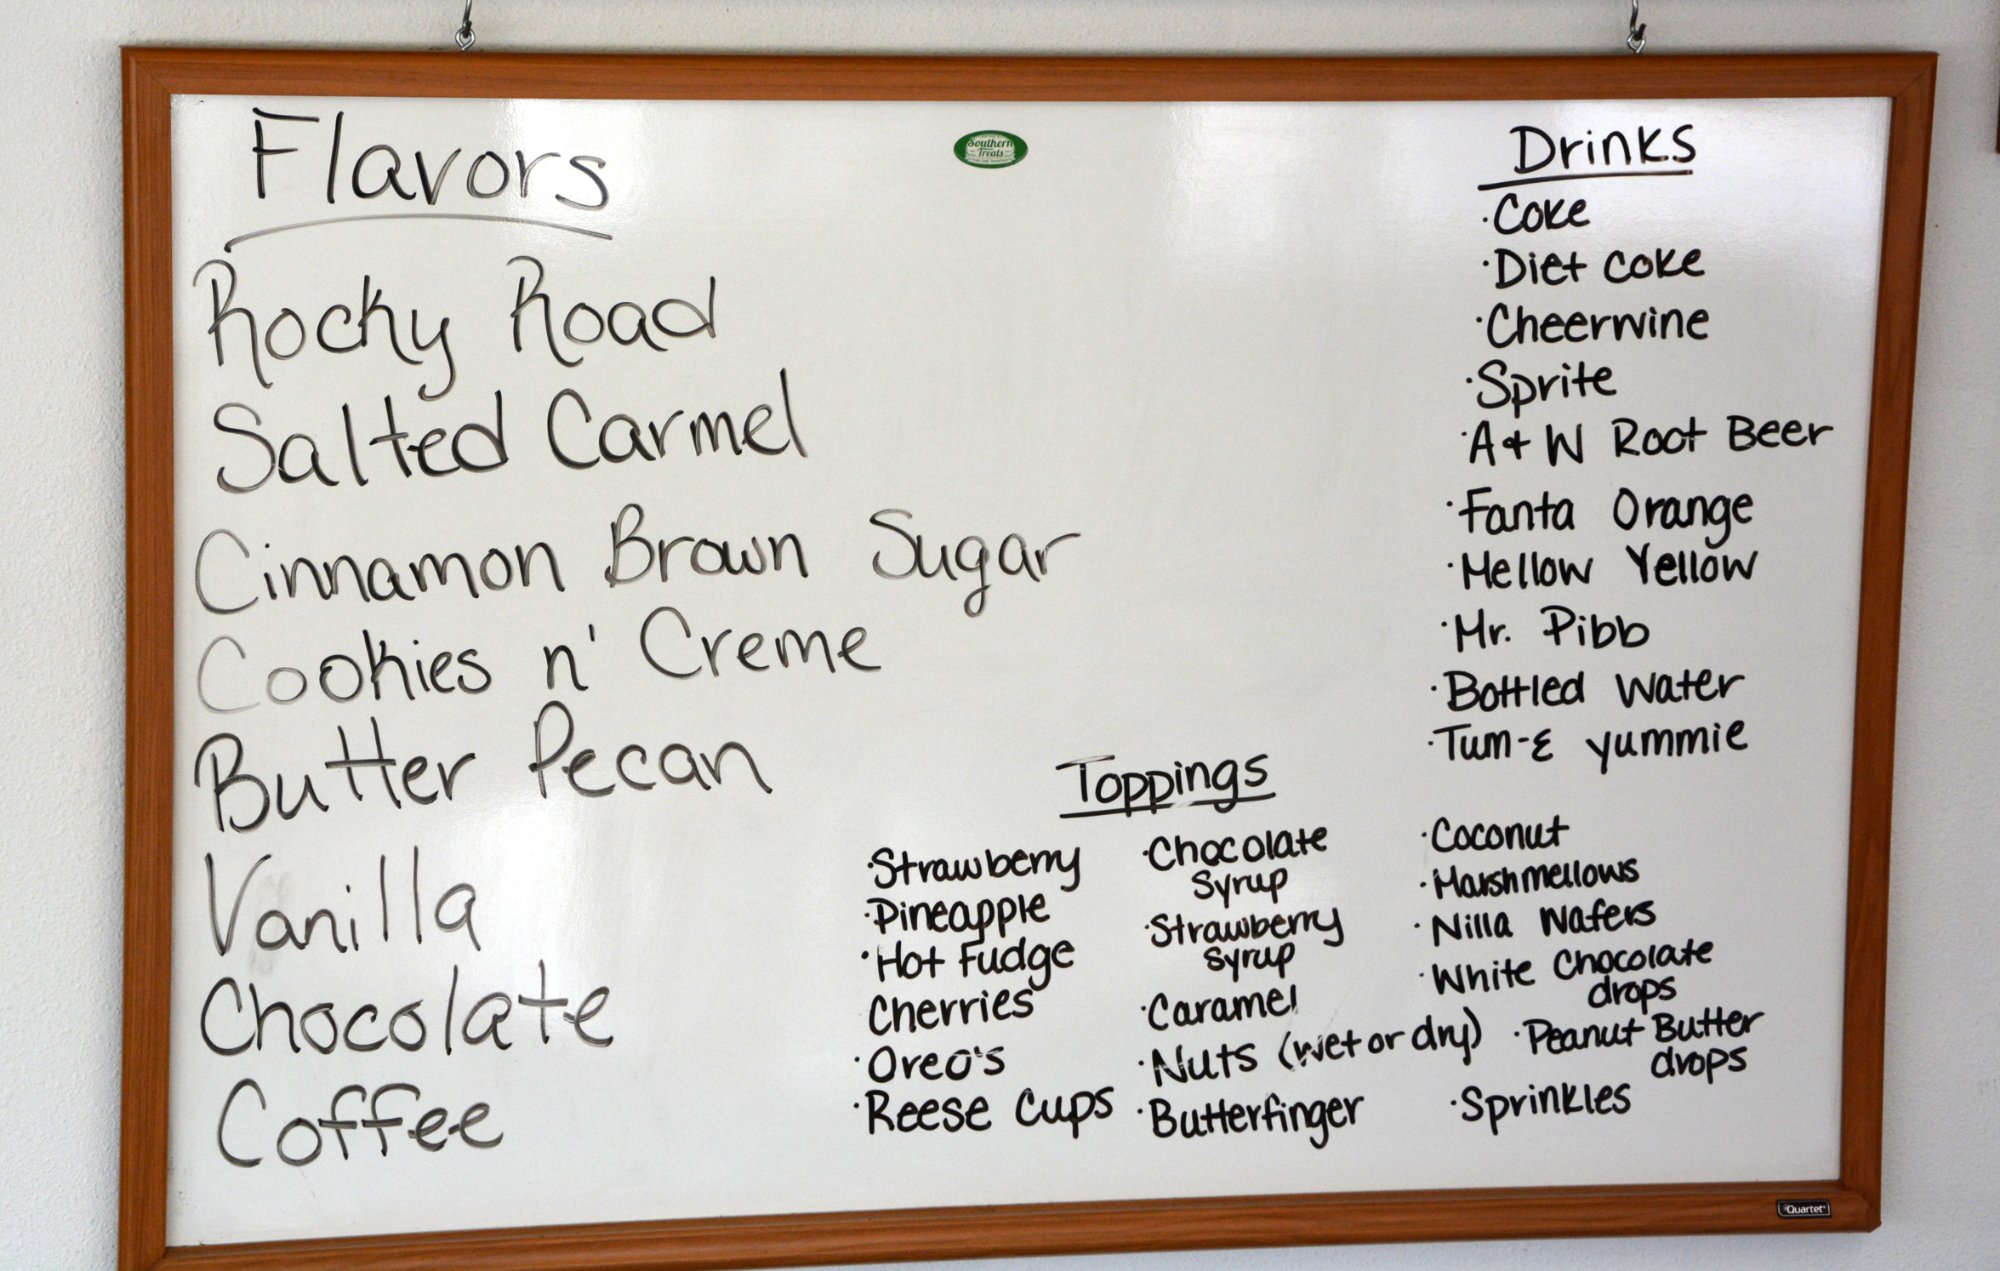 Flavors
Rocky Road
Salted Carmel
Cinnamon Brown Sugar
Cookies n' Creme
Butter Pecan
Vanilla
Chocolate
Coffee
Southern
Treats
Drinks
·Coke
·Diet Coke
·Cheerwine
·Sprite
·A & W Root Beer
·Fanta Orange
·Mellow Yellow
·Mr. Pibb
·Bottled Water
·Tum-E yummie
Toppings
·Strawberry
·Pineapple
·Hot Fudge
Cherries
·Oreo's
·Reese Cups
·Chocolate
Syrup
·Strawberry
Syrup
·Caramel
·Nuts (wet or dry)
·Butterfinger
·Coconut
·Marshmellows
·Nilla Wafers
·White Chocolate
drops
·Peanut Butter
drops
·Sprinkles
Quartet